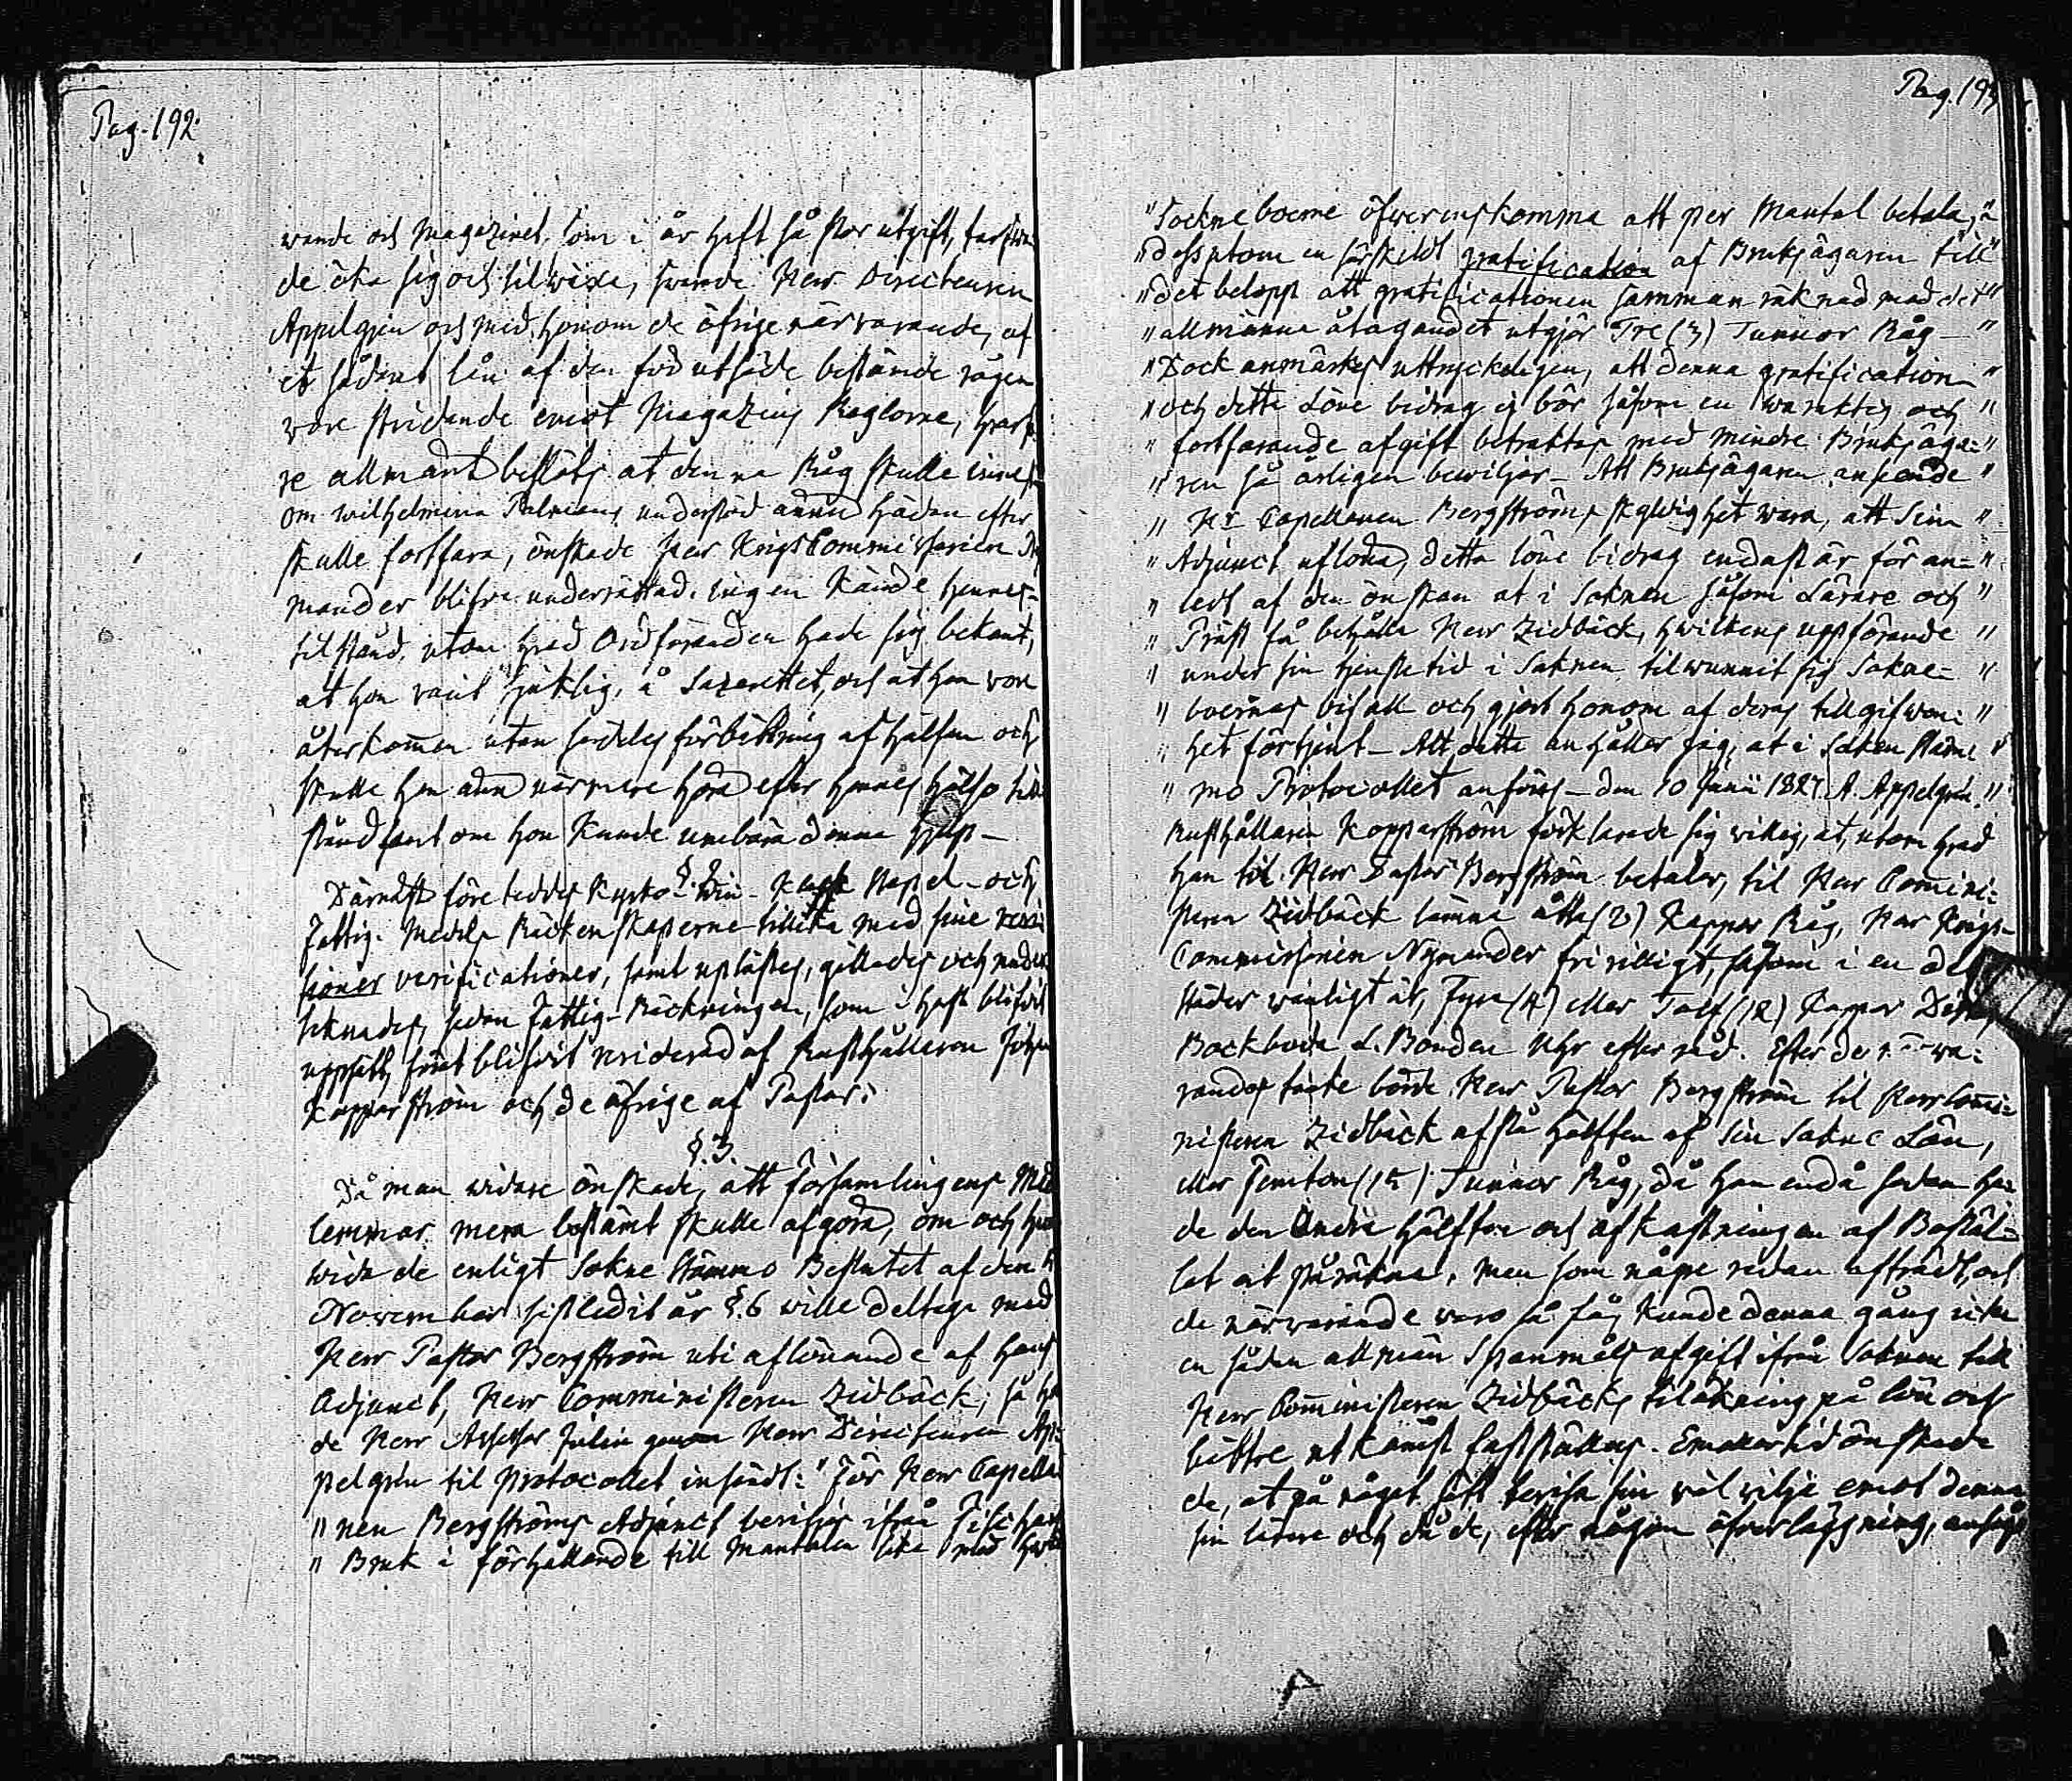 Pag. 192.
wande och Magazinet, som i år haft så stor utgift,
de öka sig och tilwäxa, swarade Herr Directeuren
Appelgren och med honom de öfrige närvarande, at
et sådant lån af den för utsäde bestämde rågen
wore stridande emot Magazins Reglorne,
re allmänt beslöts at denna Råg skulle
om Wilhelmina understöd ännu hädan efter
skulle fortfara, önskade Herr KrigsCommissarien
mander blifva underrättad. Ingen kände hennes
tilstånd, utom hvad Ordföranden hade sig bekant,
at hon varit sjuklig, å Lazarettet, och at hon vore
återkommen utan särdeles förbättring af hälsan och
skulle han ännu närmere höra efter hennes hälso till-
stånd samt om hon kunde umbära denna hjelp —
§. 2.
Därnäst företeddes Kyrko- Win- Klock stapel- och
Fattig- Medels Räckenskaperne tillika med sine
sioner verificationer, samt uplästes, gillades och under
teknades, sedan Fattig-Räckningen, som i haft blifvit
uppsatt, först blifvit reviderad af Rusthållaren Johan
Kopparström och de öfrige af Pastor.
§. 3.
Då man widare önskade, att Församlingens Med
lemmar mera bestämt skulle afgöra, om och huru
wida de enligt Sokne Stämmo Beslutet af den
November sistledit år §. 6 wille deltaga med
Herr Pastor Bergström uti aflönande af hans
Adjunct, Herr Comministeren Zidbäck; så ha
de Herr Assessor Julin genom Herr Directeuren Ap-
pelgren til Protocollet insändt: "För Herr Capella
" nen Bergströms Adjunct beviljes ifrån Fiskars
" Bruk i förhållande till Mantalen lika med hwad
Pag. 193
" Sockneboerne öfwerenskomma att per Mantal betala, "
" dessutom en särskildt gratification af Bruksägaren till "
" det belopp att gratificationen sammanräknad med det "
" allmänna åtagandet utgjör Tre (3) Tunnor Råg — "
" Dock anmärkes uttryckeligen, att denna gratification "
" och detta Löne bidrag ej bör såsom en waraktig och "
" fortfarande afgift betraktas med mindre Bruksäga- "
" ren så årligen beviljar — Att Bruksägaren, anseende "
" Hr Capellanen Bergströms skyldighet wara, att sin "
" Adjunct aflöna, detta löne bidrag endast är för an- "
" ledt af den önskan at i Soknen såsom Lärare och "
" Präst få behålla Herr Zidbäck, hwilkens uppförande "
" under sin tjenstetid i Soknen tilwunnit sig Sokne- "
" boernas bifall och gjort honom af deras tillgifwen- "
" het förtjent — Allt detta anhåller jag, at i Sokenstäm- "
" mo Protocollet anföres — den 10 Junii 1827. A. Appelgrén. "
Rusthållaren Kopparström förklarade sig willig, at, utom hvad
han til Herr Pastor Bergström betaler, til Herr Commini-
steren Zidbäck lämna åtta (8) Kappar Råg, Herr Krigs-
Commissarien Nymander frivilligt, såsom i en del
städer wanligt är, Fyra (4) eller Tolf (12)
Bockboda L. Bonden efter råd. Efter de när wa-
randes tanke borde Herr Pastor Bergström til Herr Commi-
nisteren Zidbäck afstå hälften af sin Sokne Lön,
eller Femton (15) Tunnor Råg, då han ändå sedan ha-
de den andra hälften och afkastningen af Bostäl-
let at påräkna. Men som någre redan afträdt, och
de närwarande woro så få, kunde denna gång icke
en sådan allmän Spanmåls afgift ifrån Soknen till
Herr Comministeren Zidbäcks tilökning på lön och
bättre utkomst fastställas. Emellertid önskade
de, at på något sätt bevisa sin wälvilje emot denna
sin lärare och då de, efter någon öfverläggning, ansågo